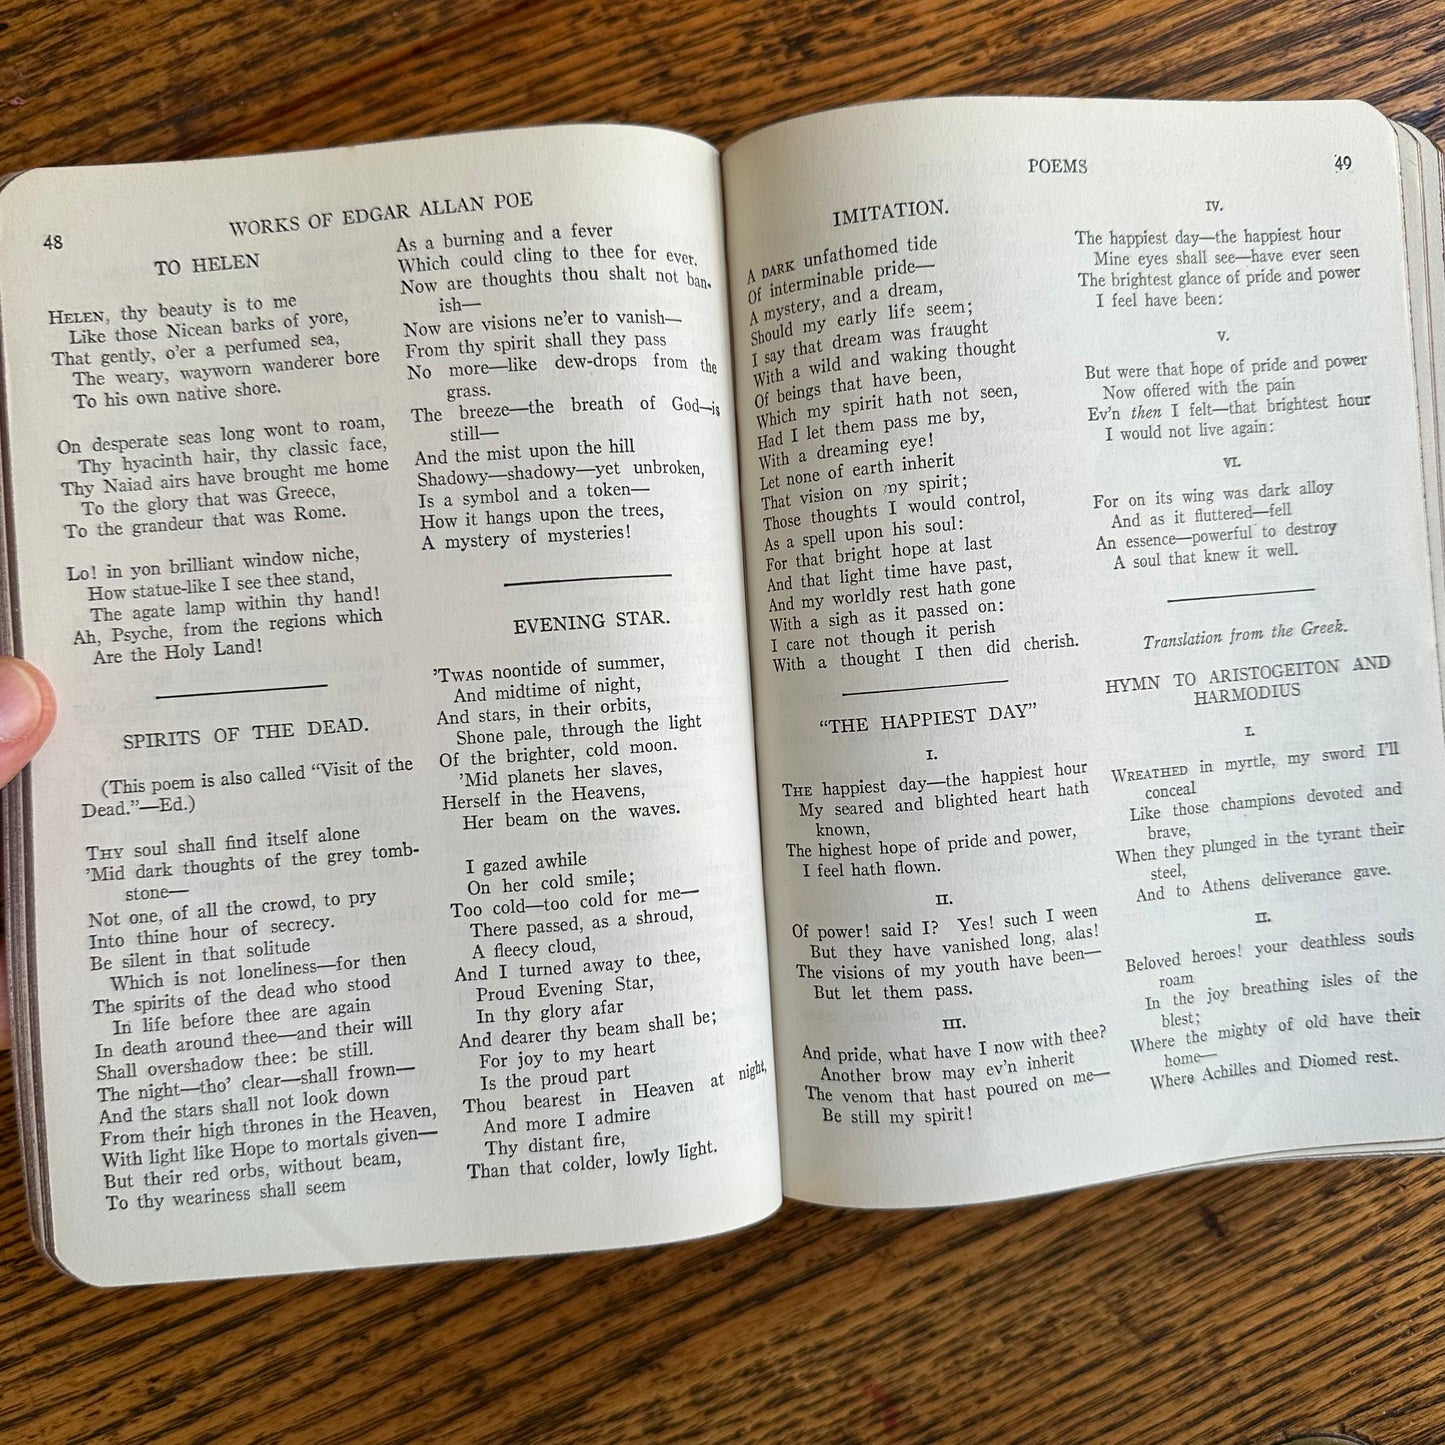 48
WORKS OF EDGAR ALLAN POE
TO HELEN
HELEN, thy beauty is to me
Like those Nicean barks of yore,
That gently, o'er a perfumed sea,
The weary, wayworn wanderer bore
To his own native shore.
On desperate seas long wont to roam,
Thy hyacinth hair, thy classic face,
Thy Naiad airs have brought me home
To the glory that was Greece,
To the grandeur that was Rome.
Lo! in yon brilliant window niche,
How statue-like I see thee stand,
The agate lamp within thy hand!
Ah, Psyche, from the regions which
Are the Holy Land!
SPIRITS OF THE DEAD.
(This poem is also called "Visit of the
Dead."—Ed.)
THY soul shall find itself alone
'Mid dark thoughts of the grey tomb-
stone—
Not one, of all the crowd, to pry
Into thine hour of secrecy.
Be silent in that solitude
Which is not loneliness—for then
The spirits of the dead who stood
In life before thee are again
In death around thee—and their will
Shall overshadow thee: be still.
The night—tho' clear—shall frown—
And the stars shall not look down
From their high thrones in the Heaven,
With light like Hope to mortals given—
But their red orbs, without beam,
To thy weariness shall seem
As a burning and a fever
Which could cling to thee for ever.
Now are thoughts thou shalt not ban-
ish—
Now are visions ne'er to vanish—
From thy spirit shall they pass
No more—like dew-drops from the
grass.
The breeze—the breath of God—is
still—
And the mist upon the hill
Shadowy—shadowy—yet unbroken,
Is a symbol and a token—
How it hangs upon the trees,
A mystery of mysteries!
EVENING STAR.
'TWAS noontide of summer,
And midtime of night,
And stars, in their orbits,
Shone pale, through the light
Of the brighter, cold moon.
'Mid planets her slaves,
Herself in the Heavens,
Her beam on the waves.
I gazed awhile
On her cold smile;
Too cold—too cold for me—
There passed, as a shroud,
A fleecy cloud,
And I turned away to thee,
Proud Evening Star,
In thy glory afar
And dearer thy beam shall be;
For joy to my heart
Is the proud part
Thou bearest in Heaven at night,
And more I admire
Thy distant fire,
Than that colder, lowly light.
POEMS
49
IMITATION.
A DARK unfathomed tide
Of interminable pride—
A mystery, and a dream,
Should my early life seem;
I say that dream was fraught
With a wild and waking thought
Of beings that have been,
Which my spirit hath not seen,
Had I let them pass me by,
With a dreaming eye!
Let none of earth inherit
That vision on my spirit;
Those thoughts I would control,
As a spell upon his soul:
For that bright hope at last
And that light time have past,
And my worldly rest hath gone
With a sigh as it passed on:
I care not though it perish
With a thought I then did cherish.
"THE HAPPIEST DAY"
I.
THE happiest day—the happiest hour
My seared and blighted heart hath
known,
The highest hope of pride and power,
I feel hath flown.
II.
Of power! said I? Yes! such I ween
But they have vanished long, alas!
The visions of my youth have been—
But let them pass.
III.
And pride, what have I now with thee?
Another brow may ev'n inherit
The venom that hast poured on me—
Be still my spirit!
IV.
The happiest day—the happiest hour
Mine eyes shall see—have ever seen
The brightest glance of pride and power
I feel have been:
V.
But were that hope of pride and power
Now offered with the pain
Ev'n then I felt—that brightest hour
I would not live again:
VI.
For on its wing was dark alloy
And as it fluttered—fell
An essence—powerful to destroy
A soul that knew it well.
Translation from the Greek.
HYMN TO ARISTOGEITON AND
HARMODIUS
I.
WREATHED in myrtle, my sword I'll
conceal
Like those champions devoted and
brave,
When they plunged in the tyrant their
steel,
And to Athens deliverance gave.
II.
Beloved heroes! your deathless souls
roam
In the joy breathing isles of the
blest;
Where the mighty of old have their
home—
Where Achilles and Diomed rest.